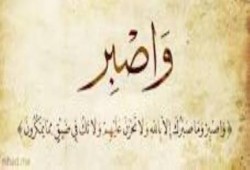 وَاصْبِر
﴿ وَاصْبِرْ وَمَا صَبْرُكَ إِلَّا بِاللَّهِ وَلَا تَحْزَنْ عَلَيْهِمْ وَلَا تَكُ فِي ضَيْقٍ مِمَّا يَمْكُرُونَ ﴾